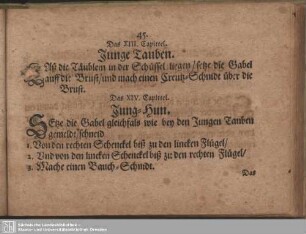 45.
Das XIII. Capittel.
Junge Tauben.
die Täublein in der Schüssel liegen/ setze die Gabel
auff die Brust/ und mach einen Creutz-Schnidt über die
Brust.
Das XIV. Capittel.
Jung-Hun.
SEtze die Gabel gleichfals wie bey den Jungen Tauben
schneid
1. Von den rechten Schenckel biß zu den lincken Flügel/
2. Und von den lincken Schenckel biß zu den rechten Flügel/
3. Mache einen Bauch-Schnidt.
Das